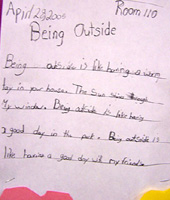 April 28, 2005
Room 110
Being Outside
Being outside is like having a warm
day in your house. The Sun through
My window. Being outside is like having
a good day in the park. Being outside is
like having a good day with my friends.